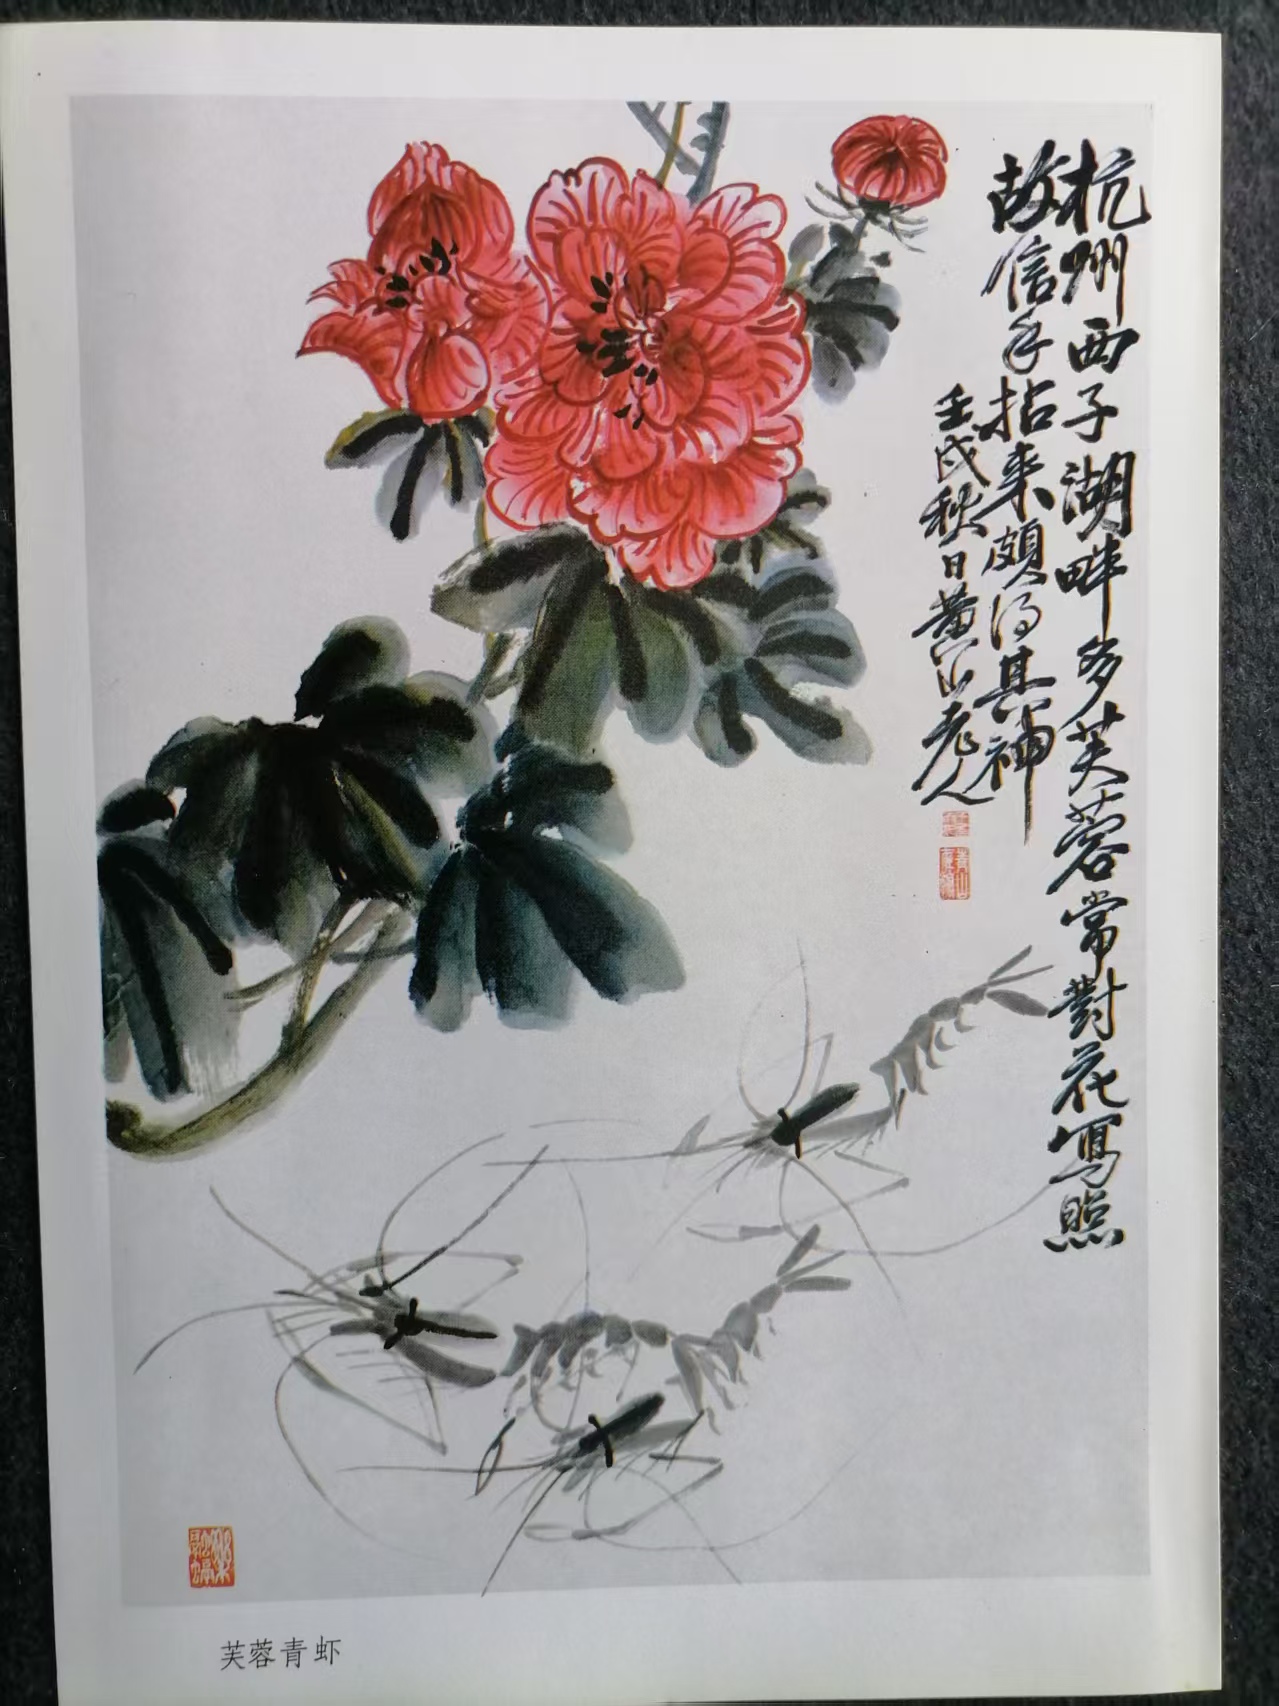 杭州西子湖畔多芙蓉常對花寫照
故信手拈来頗得其神
壬戌秋日黄山老人
芙蓉青虾